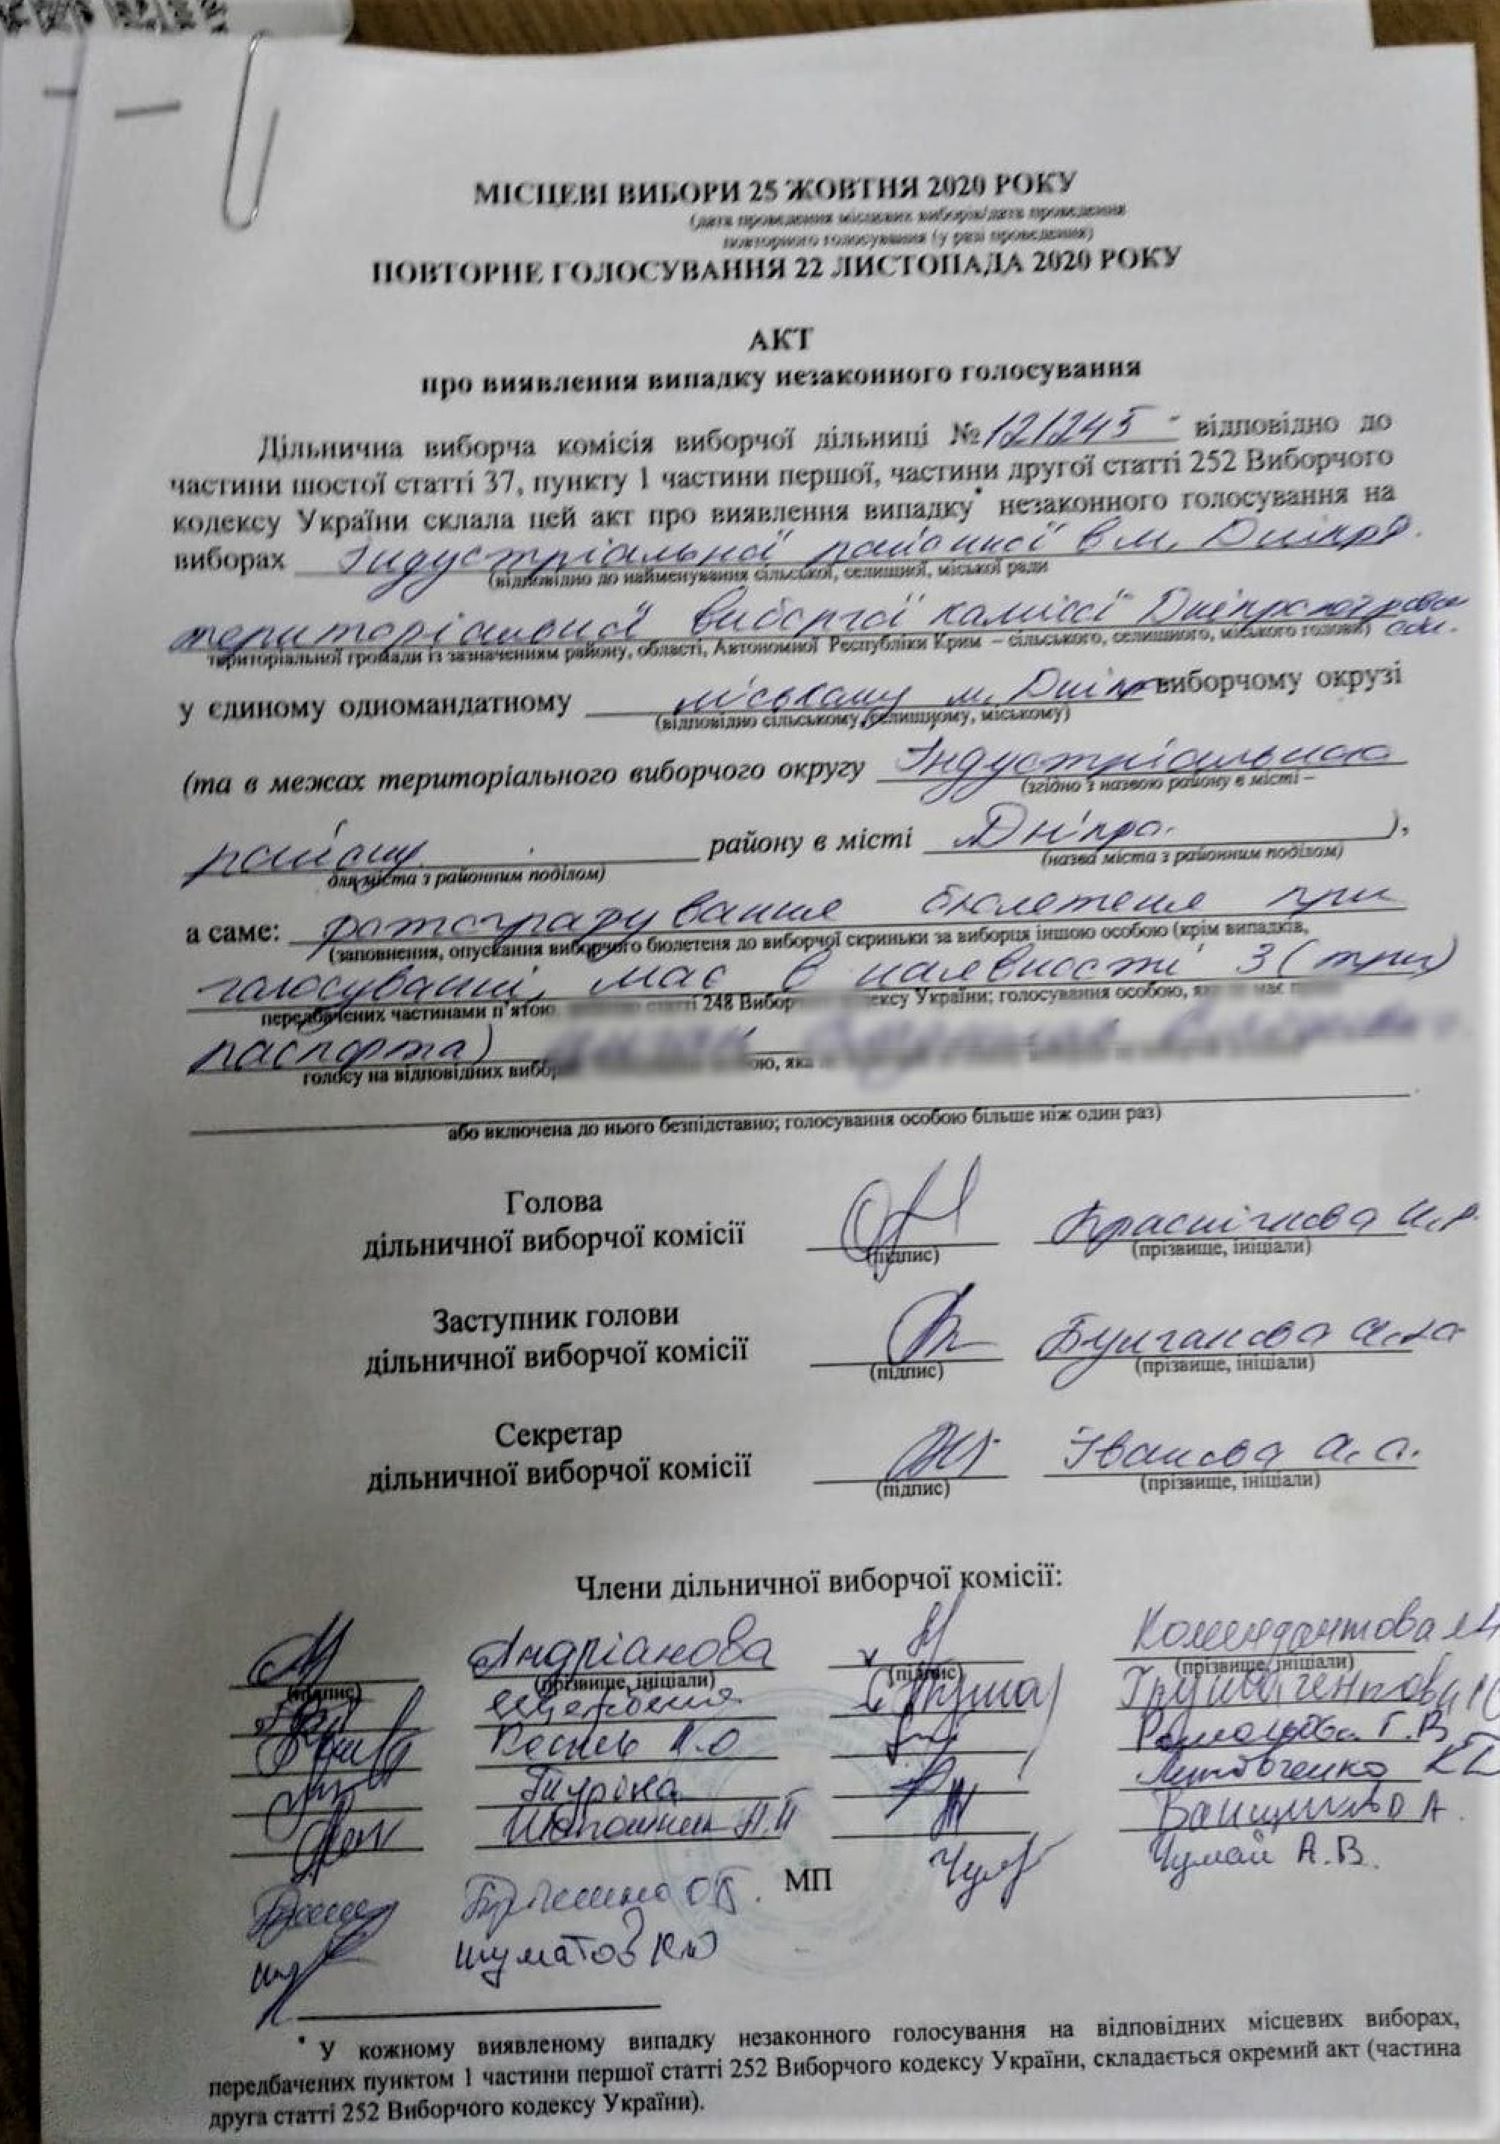 МІСЦЕВІ ВИБОРИ 25 ЖОВТНЯ 2020 РОКУ
(дата проведення місцевих виборів/дата проведення
повторного голосування (у разі проведення)
ПОВТОРНЕ ГОЛОСУВАННЯ 22 ЛИСТОПАДА 2020 РОКУ
АКТ
про виявлення випадку незаконного голосування
Дільнична виборча комісія виборчої дільниці № 121245 відповідно до
частини шостої статті 37, пункту 1 частини першої, частини другої статті 252 Виборчого
кодексу України склала цей акт про виявлення випадку* незаконного голосування на
виборах Індустріальної районної в м. Дніпрі
(відповідно до найменування сільської, селищної, міської ради
територіальної виборчої комісії Дніпропетровська обл.
територіальної громади із зазначенням району, області, Автономної Республіки Крим – сільського, селищного, міського голови)
у єдиному одномандатному міському м. Дніпр виборчому окрузі
(відповідно сільському, селищному, міському)
(та в межах територіального виборчого округу Індустріального
(згідно з назвою району в місті –
району району в місті Дніпро. ),
для міста з районним поділом) (назва міста з районним поділом)
а саме: фотографування бюлетеня при
(заповнення, опускання виборчого бюлетеня до виборчої скриньки за виборця іншою особою (крім випадків,
голосуванні, має в наявності 3 (три)
передбачених частинами п'ятою, статті 248 Виборчого кодексу України; голосування особою, яка не має права
паспорта)
голосу на відповідних
або включена до нього безпідставно; голосування особою більше ніж один раз)
Голова
дільничної виборчої комісії
(підпис) (прізвище, ініціали)
Заступник голови
дільничної виборчої комісії Булгакова
(підпис) (прізвище, ініціали)
Секретар
дільничної виборчої комісії Іванова А.С.
(підпис) (прізвище, ініціали)
Члени дільничної виборчої комісії:
Андріанова Комендантова
(підпис) (прізвище, ініціали) (підпис) (прізвище, ініціали)
Г.В.
Туріна Литовченко
Шапошник
МП Чумай А.В.
Шуматов
* У кожному виявленому випадку незаконного голосування на відповідних місцевих виборах,
передбачених пунктом 1 частини першої статті 252 Виборчого кодексу України, складається окремий акт (частина
друга статті 252 Виборчого кодексу України).